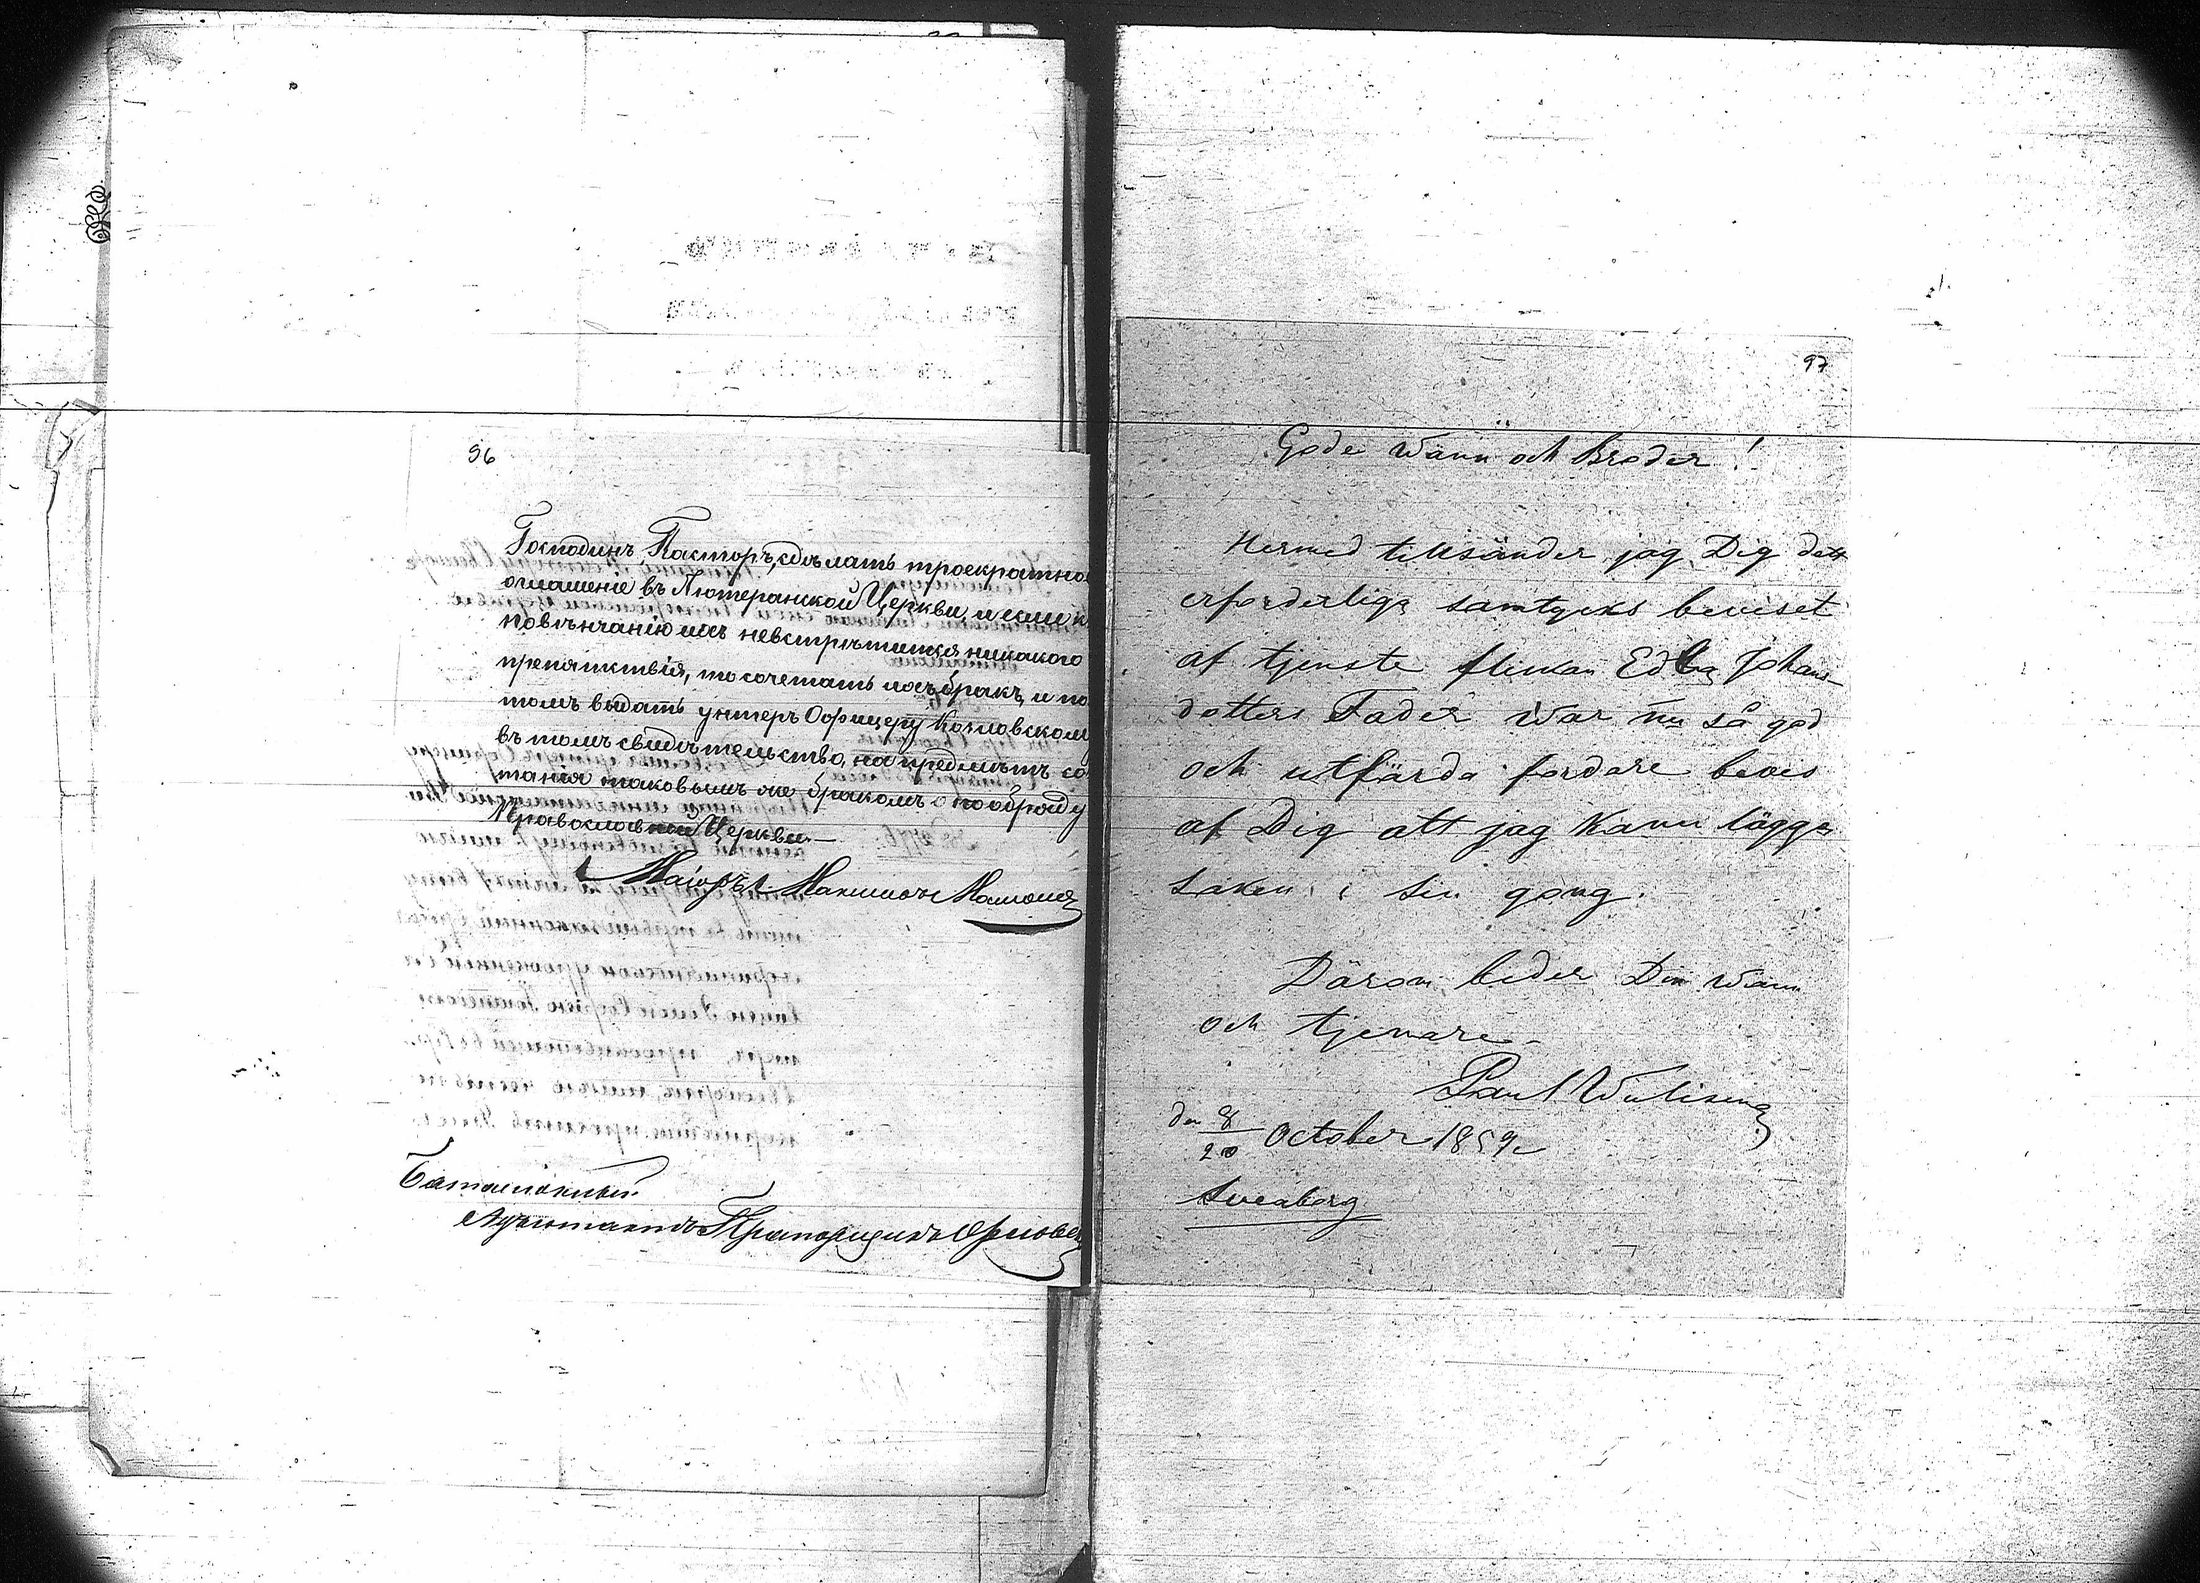 96
Господинъ Пасторъ, сдѣлать троекратно
оглашенiе въ Лютеранской Церкви, и если к
повѣнчанiю ихъ невстрѣтится никакого
препятствiя, то сочетать ихъ бракъ, и по
томъ выдать унтеръ Офицеру Козловском
въ томъ свидѣтельство, на предметъ со
танiя таковымъ же бракомъ по обряду
Православной Церкви.—
Маiоръ
Баталiонный
Адъютантъ Прапорщикъ
97
Gode Wänn och Broder!
Hermed tillsänder jag Dig dett
erforderliga samtycks beviset
af tjenste flickan Edla Johans-
dotters Fader War nu så god
och utfärda fordare bevis
af Dig att jag kann lägga
saken i sin gång.
Därom beder Din Wänn
och tjenare
Paul
den 8/20 October 1859
Sveaborg